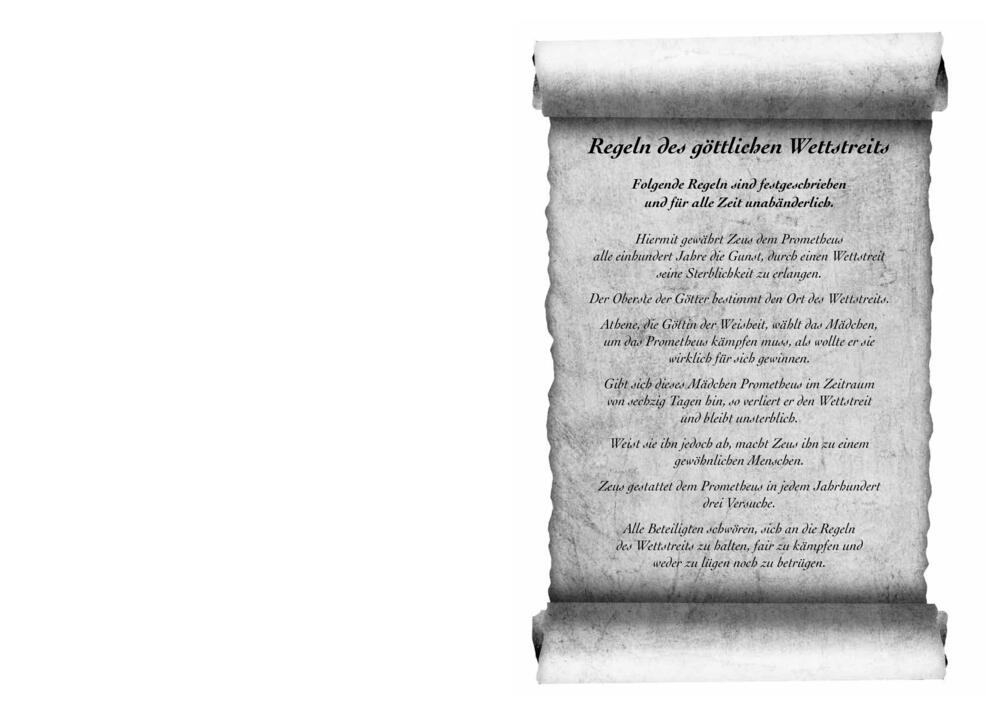 Regeln des göttlichen Wettstreits
Folgende Regeln sind festgeschrieben
und für alle Zeit unabänderlich.
Hiermit gewährt Zeus dem Prometheus
alle einhundert Jahre die Gunst, durch einen Wettstreit
seine Sterblichkeit zu erlangen.
Der Oberste der Götter bestimmt den Ort des Wettstreits.
Athene, die Göttin der Weisheit, wählt das Mädchen,
um das Prometheus kämpfen muss, als wollte er sie
wirklich für sich gewinnen.
Gibt sich dieses Mädchen Prometheus im Zeitraum
von sechzig Tagen hin, so verliert er den Wettstreit
und bleibt unsterblich.
Weist sie ihn jedoch ab, macht Zeus ihn zu einem
gewöhnlichen Menschen.
Zeus gestattet dem Prometheus in jedem Jahrhundert
drei Versuche.
Alle Beteiligten schwören, sich an die Regeln
des Wettstreits zu halten, fair zu kämpfen und
weder zu lügen noch zu betrügen.